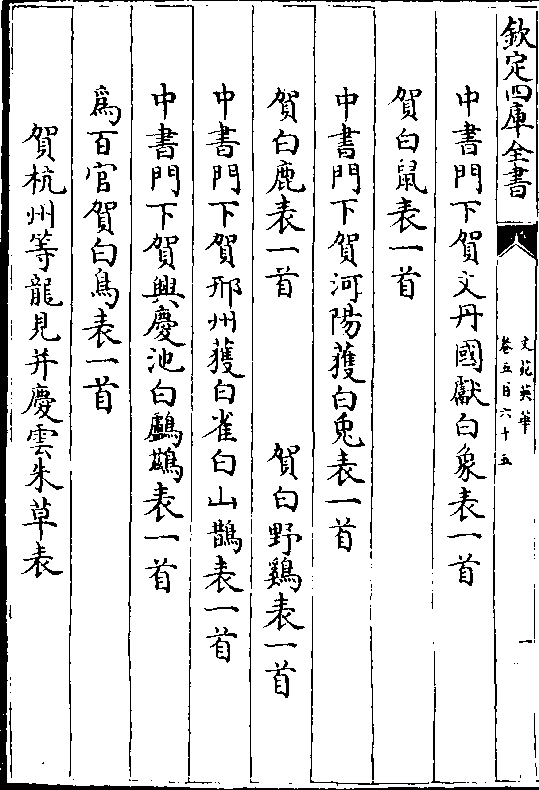 欽定四庫全書
文苑英華
卷五百六十五
一
中書門下賀文丹國獻白象表一首
賀白鼠表一首
中書門下賀河陽獲白兎表一首
賀白鹿表一首　賀白野鷄表一首
中書門下賀邢州獲白雀白山鵲表一首
中書門下賀興慶池白鸕鷀表一首
爲百官賀白烏表一首
賀杭州等龍見并慶雲朱草表